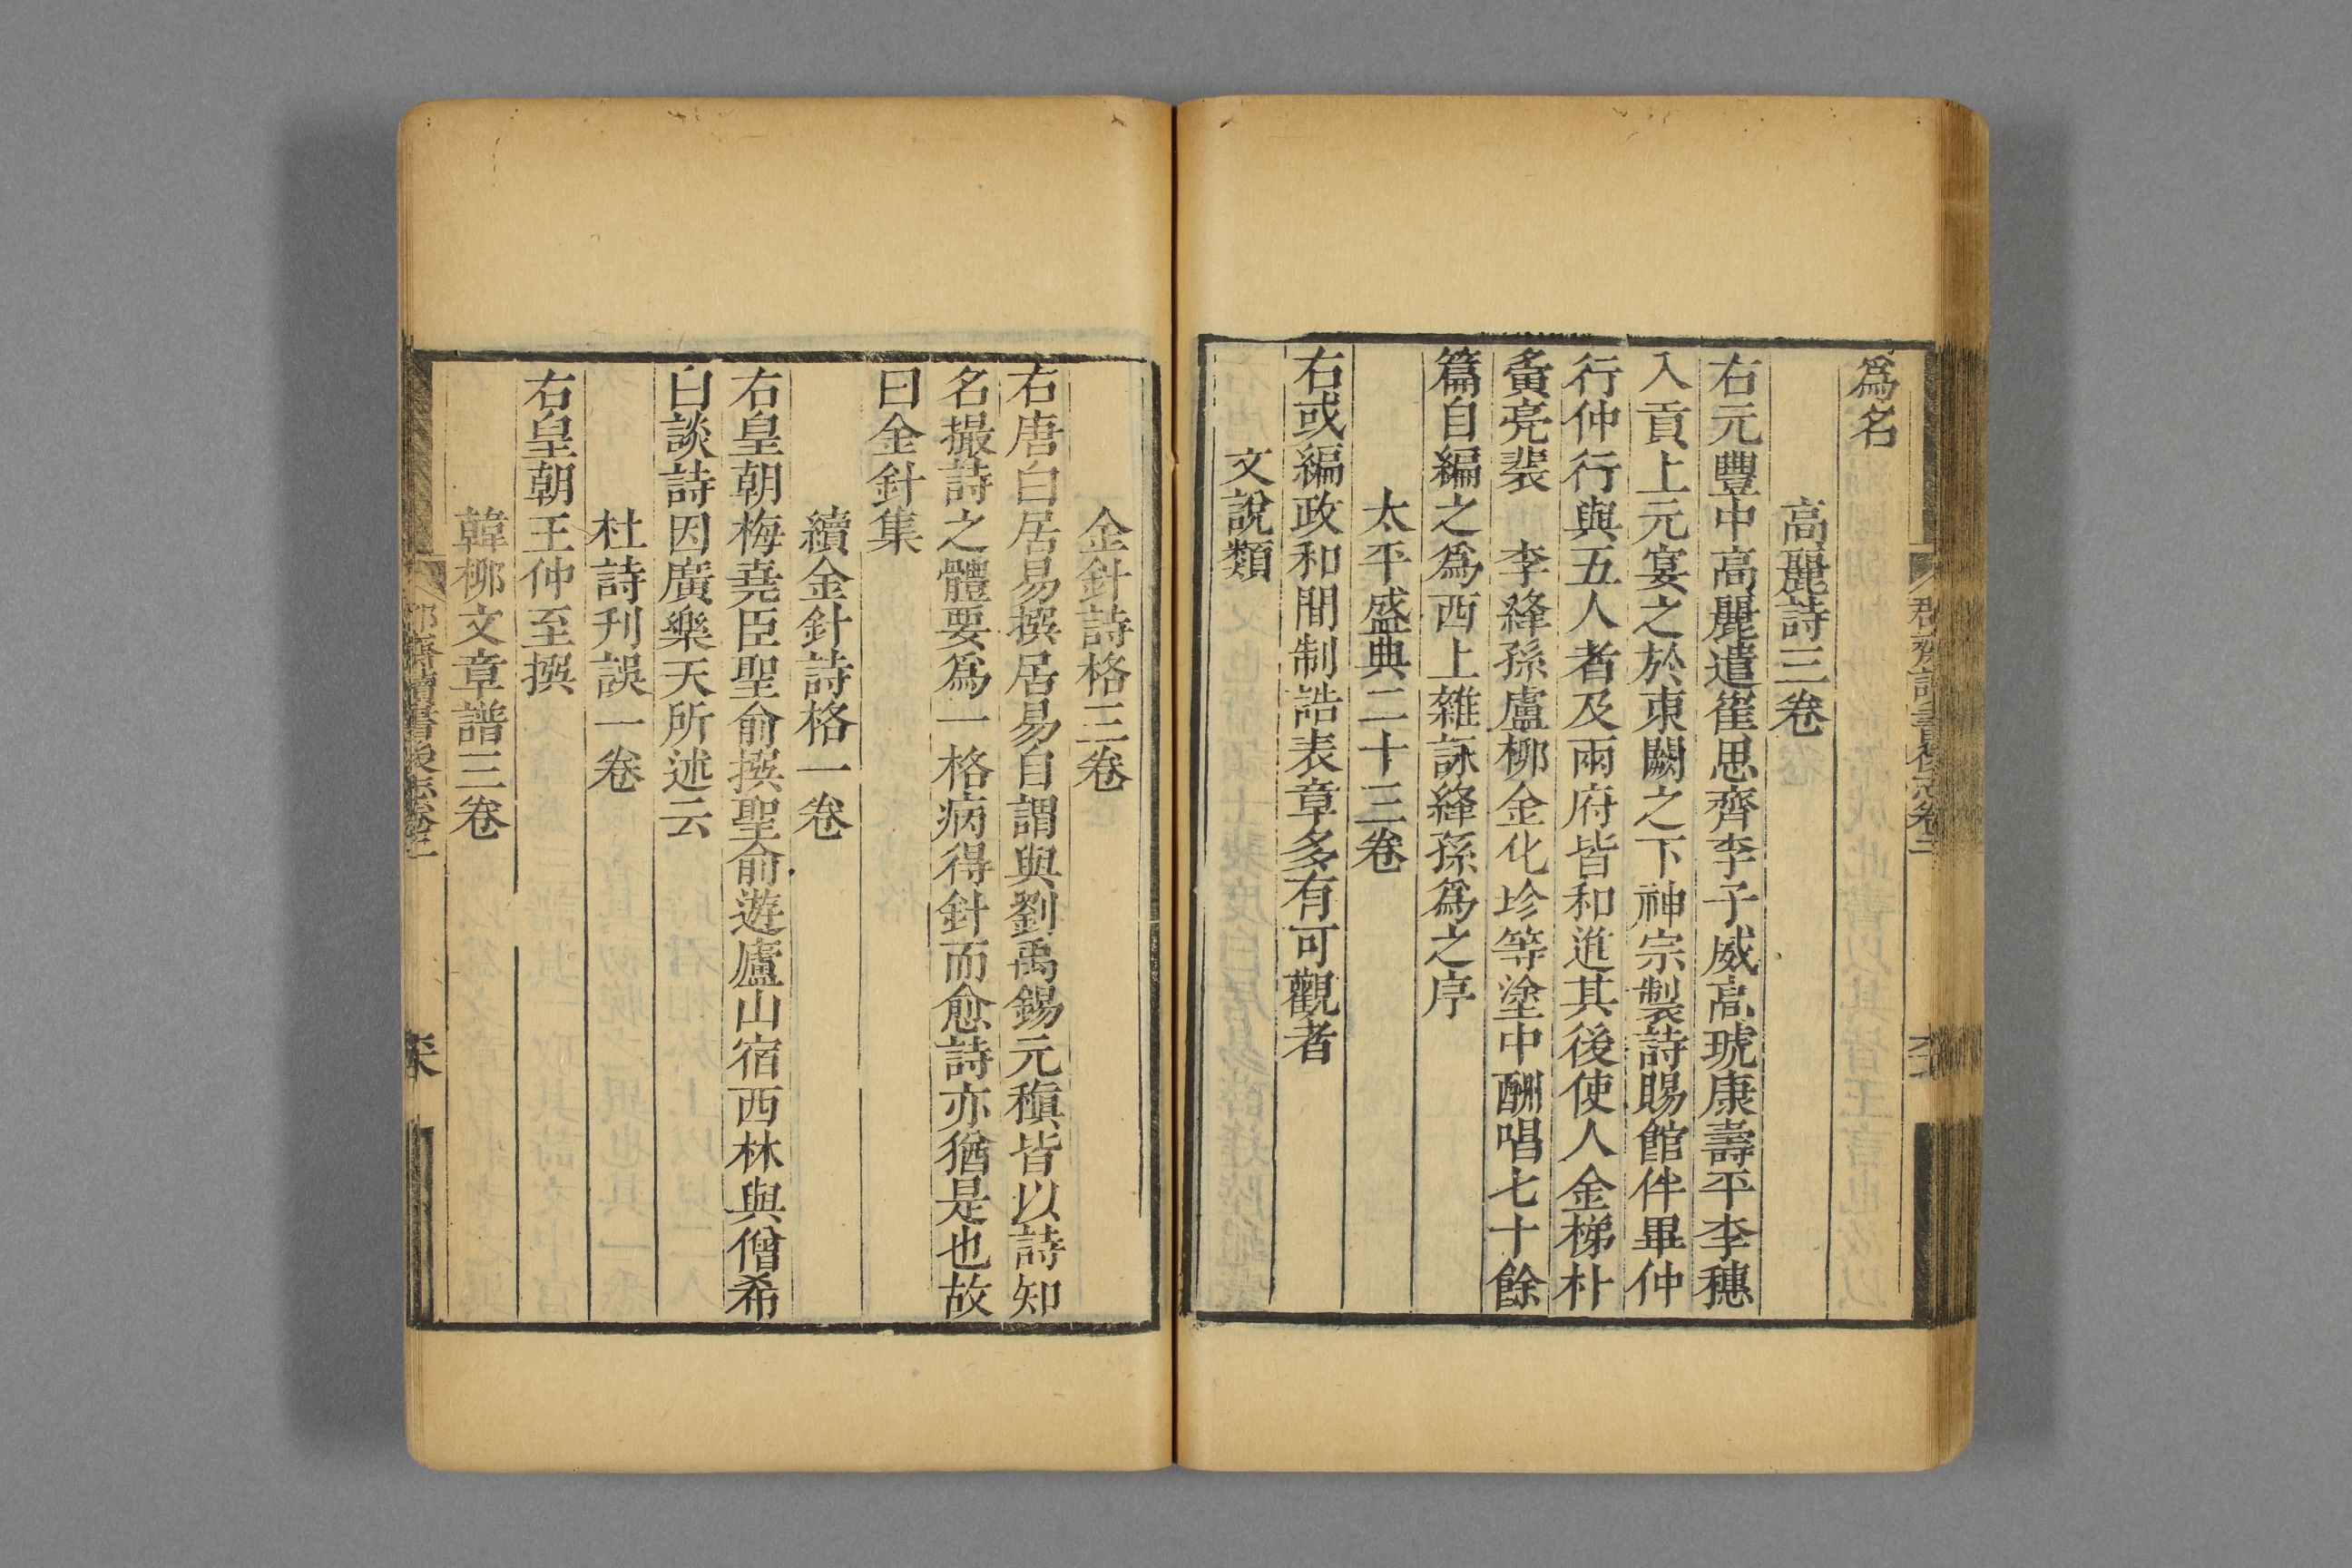 爲名
高麗詩三卷
右元豐中高麗遣崔思齊李子威高琥康壽平李穗
入貢上元宴之於東闕之下神宗製詩賜館伴畢仲
行仲行與五人者及兩府皆和進其後使人金梯朴
亮裴 李絳孫盧柳金化珍等塗中酬唱七十餘
篇自編之爲西上雜詠絳孫爲之序
太平盛典二十三卷
右或編政和間制誥表章多有可觀者
文說類
金針詩格三卷
右唐白居易撰居易自謂與劉禹錫元稹皆以詩知
名撮詩之體要爲一格病得針而愈詩亦猶是也故
曰金針集
續金針詩格一卷
右皇朝梅堯臣聖俞撰聖俞遊廬山宿西林與僧希
白談詩因廣樂天所述云
杜詩刋誤一卷
右皇朝王仲至撰
韓柳文章譜三卷